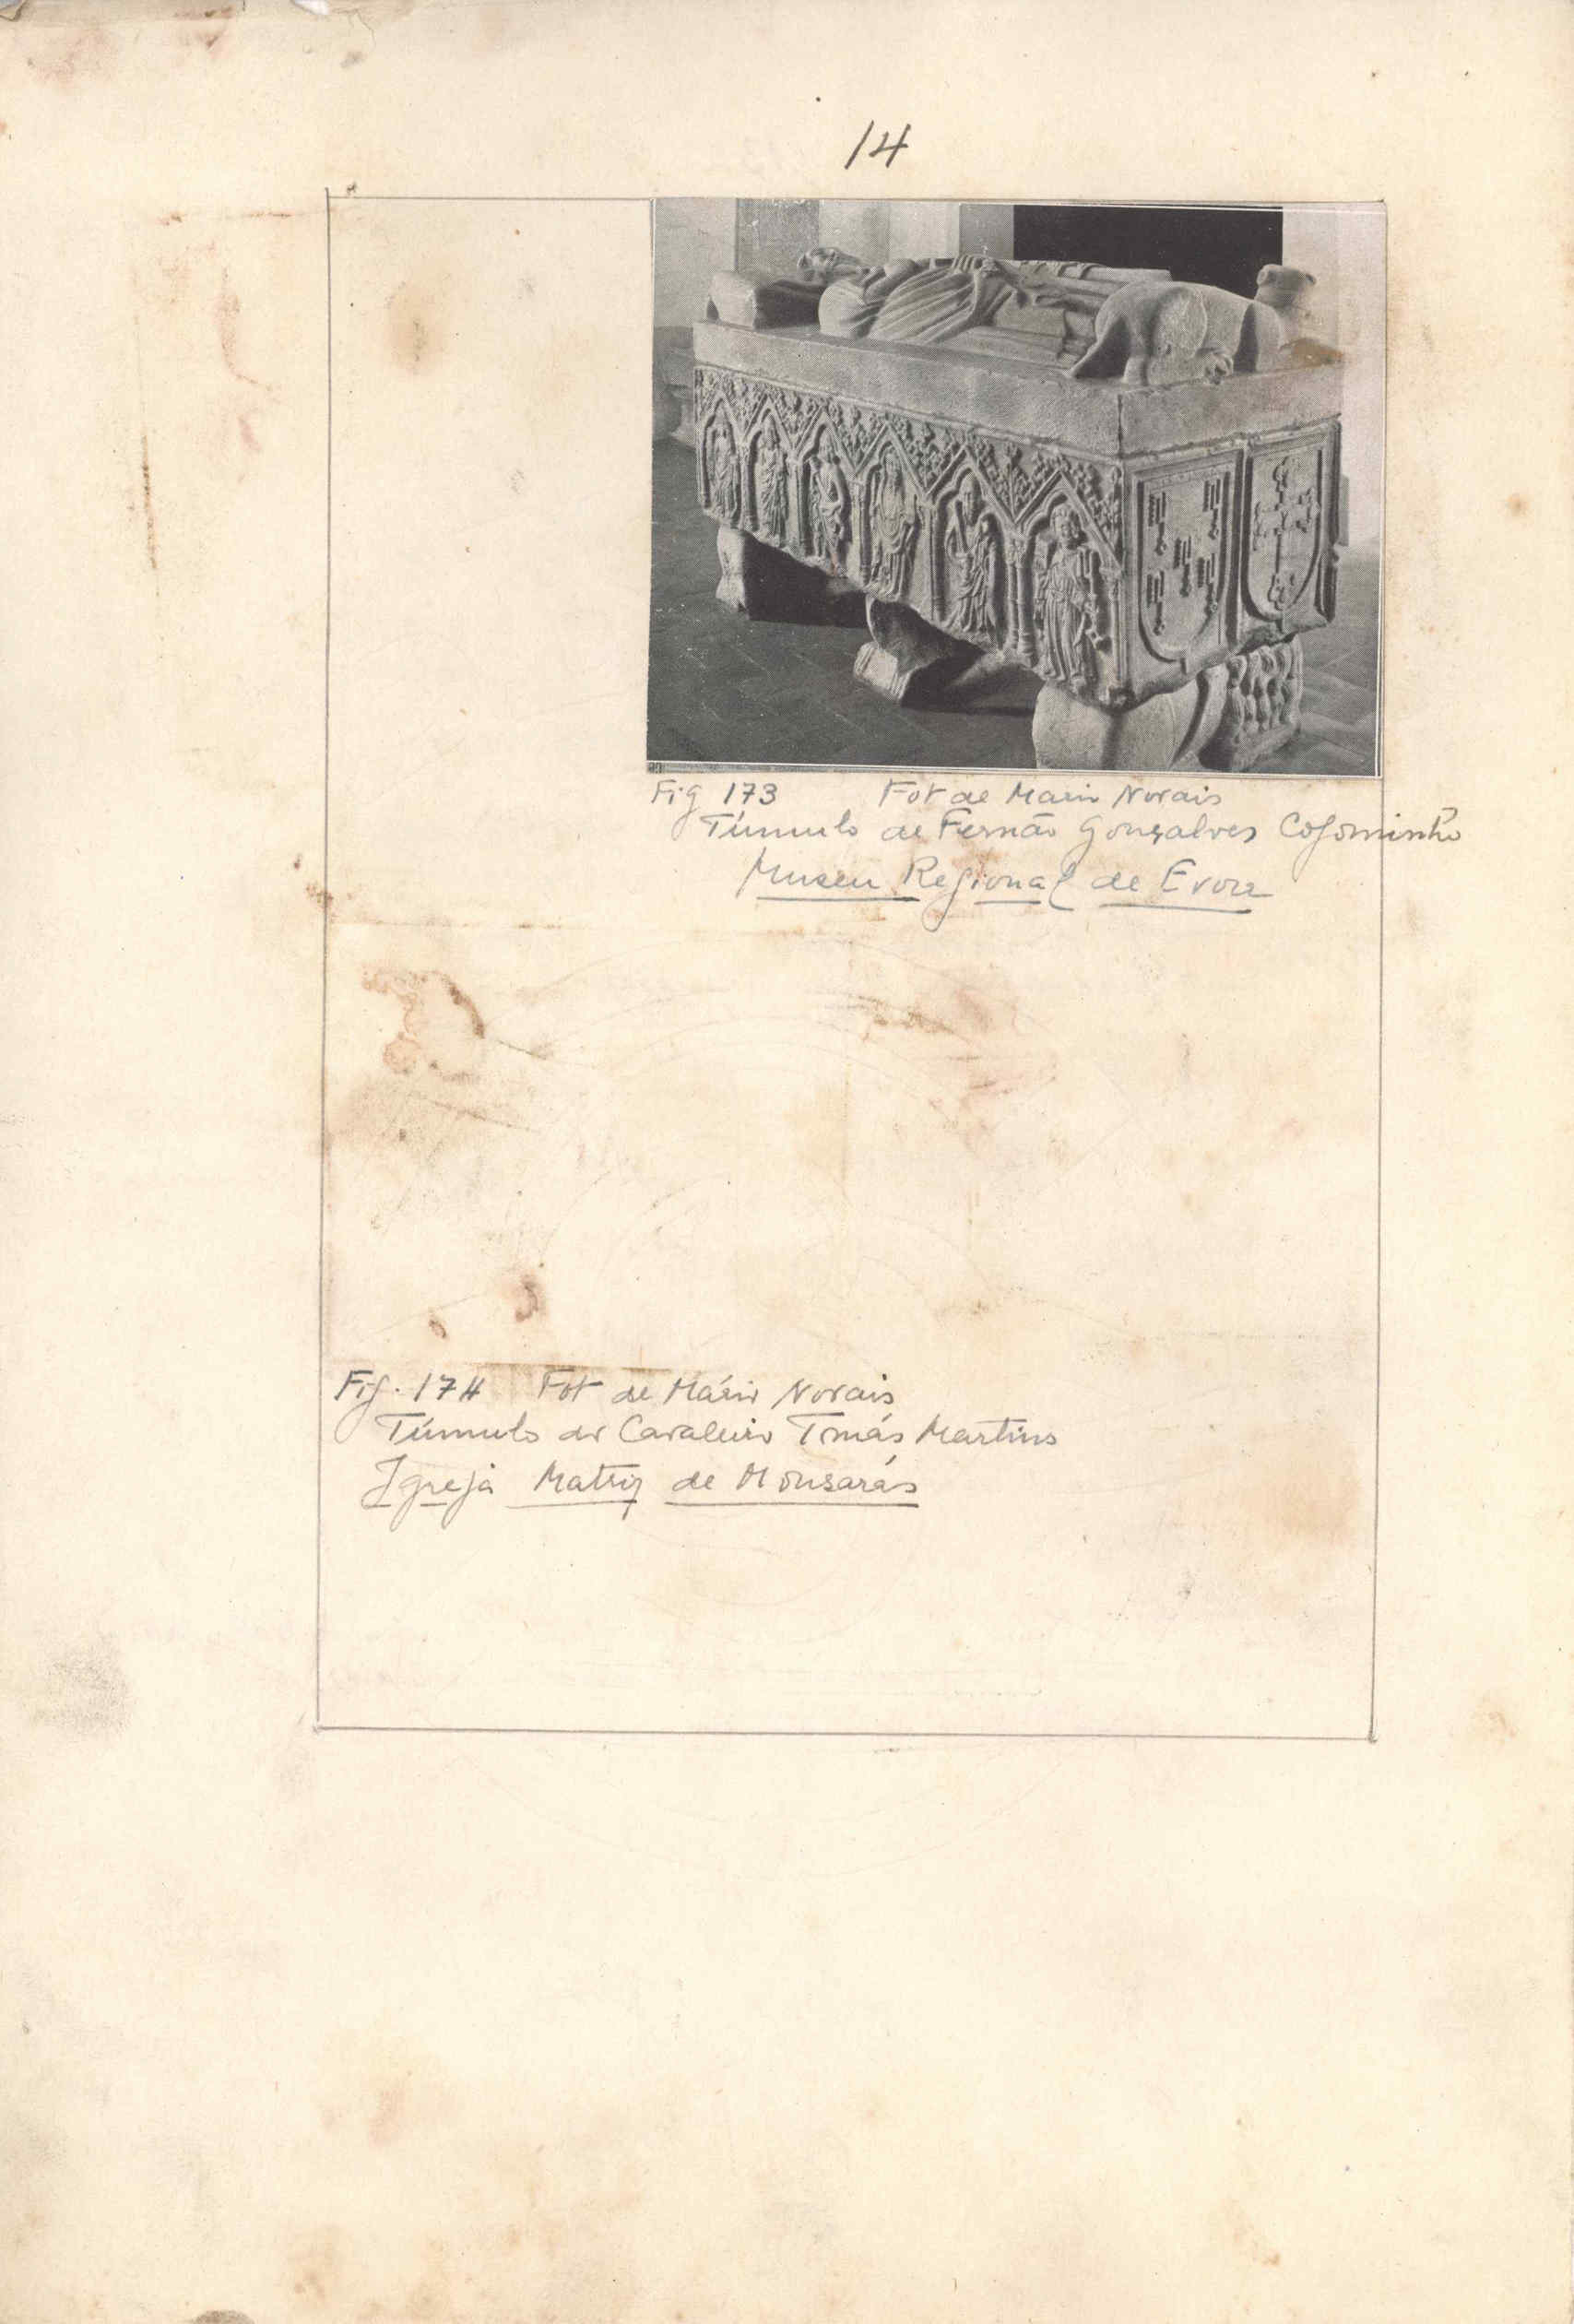 14
Fig 173 Fot de Mario Novais
Túmulo de Fernão Gonçalves Cogominho
Museu Regional de Evora
Fig. 174 Fot de Mário Novais
Túmulo do Cavaleiro Tomás Martins
Igreja Matriz de Monsarás